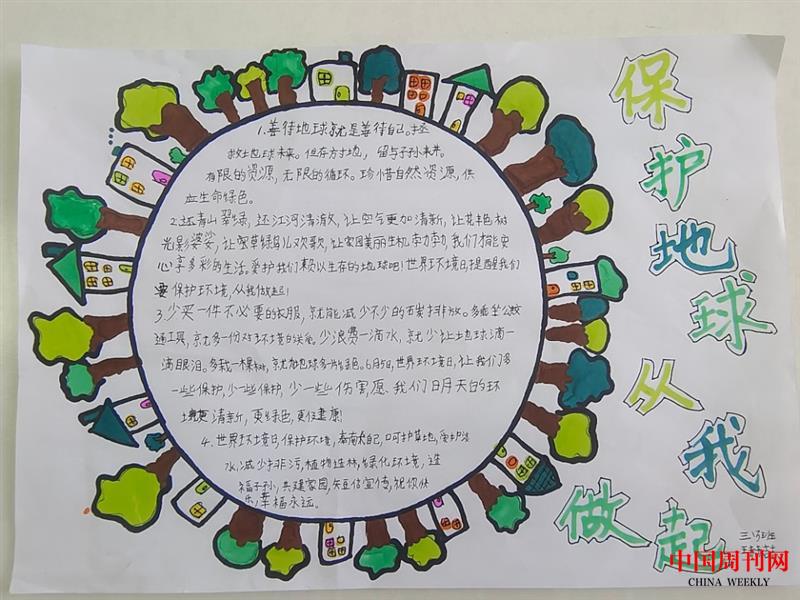 保护地球从我做起
1.善待地球就是善待自己,拯
救地球未来。但存方寸地,留与子孙来耕。
有限的资源,无限的循环。珍惜自然资源,供
血生命绿色。
2.还青山翠绿,还江河清澈,让空气更加清新,让花艳树
光影婆娑,让翠草绿鸟儿欢歌,让家园美丽生机勃勃,我们才能更
心享多彩的生活。爱护我们赖以生存的地球吧!世界环境日提醒我们
要保护环境,从我做起!
3.少买一件不必要的衣服,就能减少不少的百炭排放。多乘坐公交
通工具,就多一份对环境的关爱。少浪费一滴水,就少让地球滴一
滴眼泪。多栽一棵树,就能地球多一片绿色。6月5日,世界环境日,让我们多
一些保护,少一些保护,少一些伤害愿、我们日月天的环
境更清新,更绿色,更健康!
4.世界环境日,保护环境,
水,减少排污,植物造林,绿化环境,造
福子孙,共建家园,短信宣传,祝你快
乐,幸福永远。
三
班
中国周刊网
CHINA WEEKLY